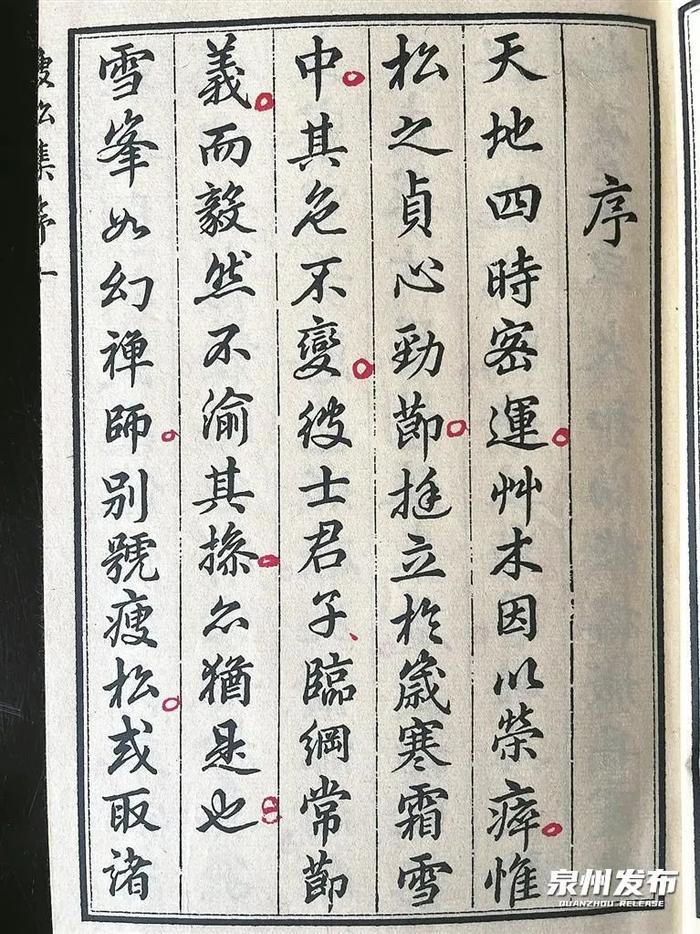 序
天地四時密運艸木因以榮瘁惟
松之貞心勁節挺立於歲寒霜雪
中其色不變彼士君子臨綱常節
義而毅然不渝其操亦猶是也
雪峯如幻禪師別號瘦松或取諸
瘦松集序一
泉州发布
QUANZHOU RELEASE